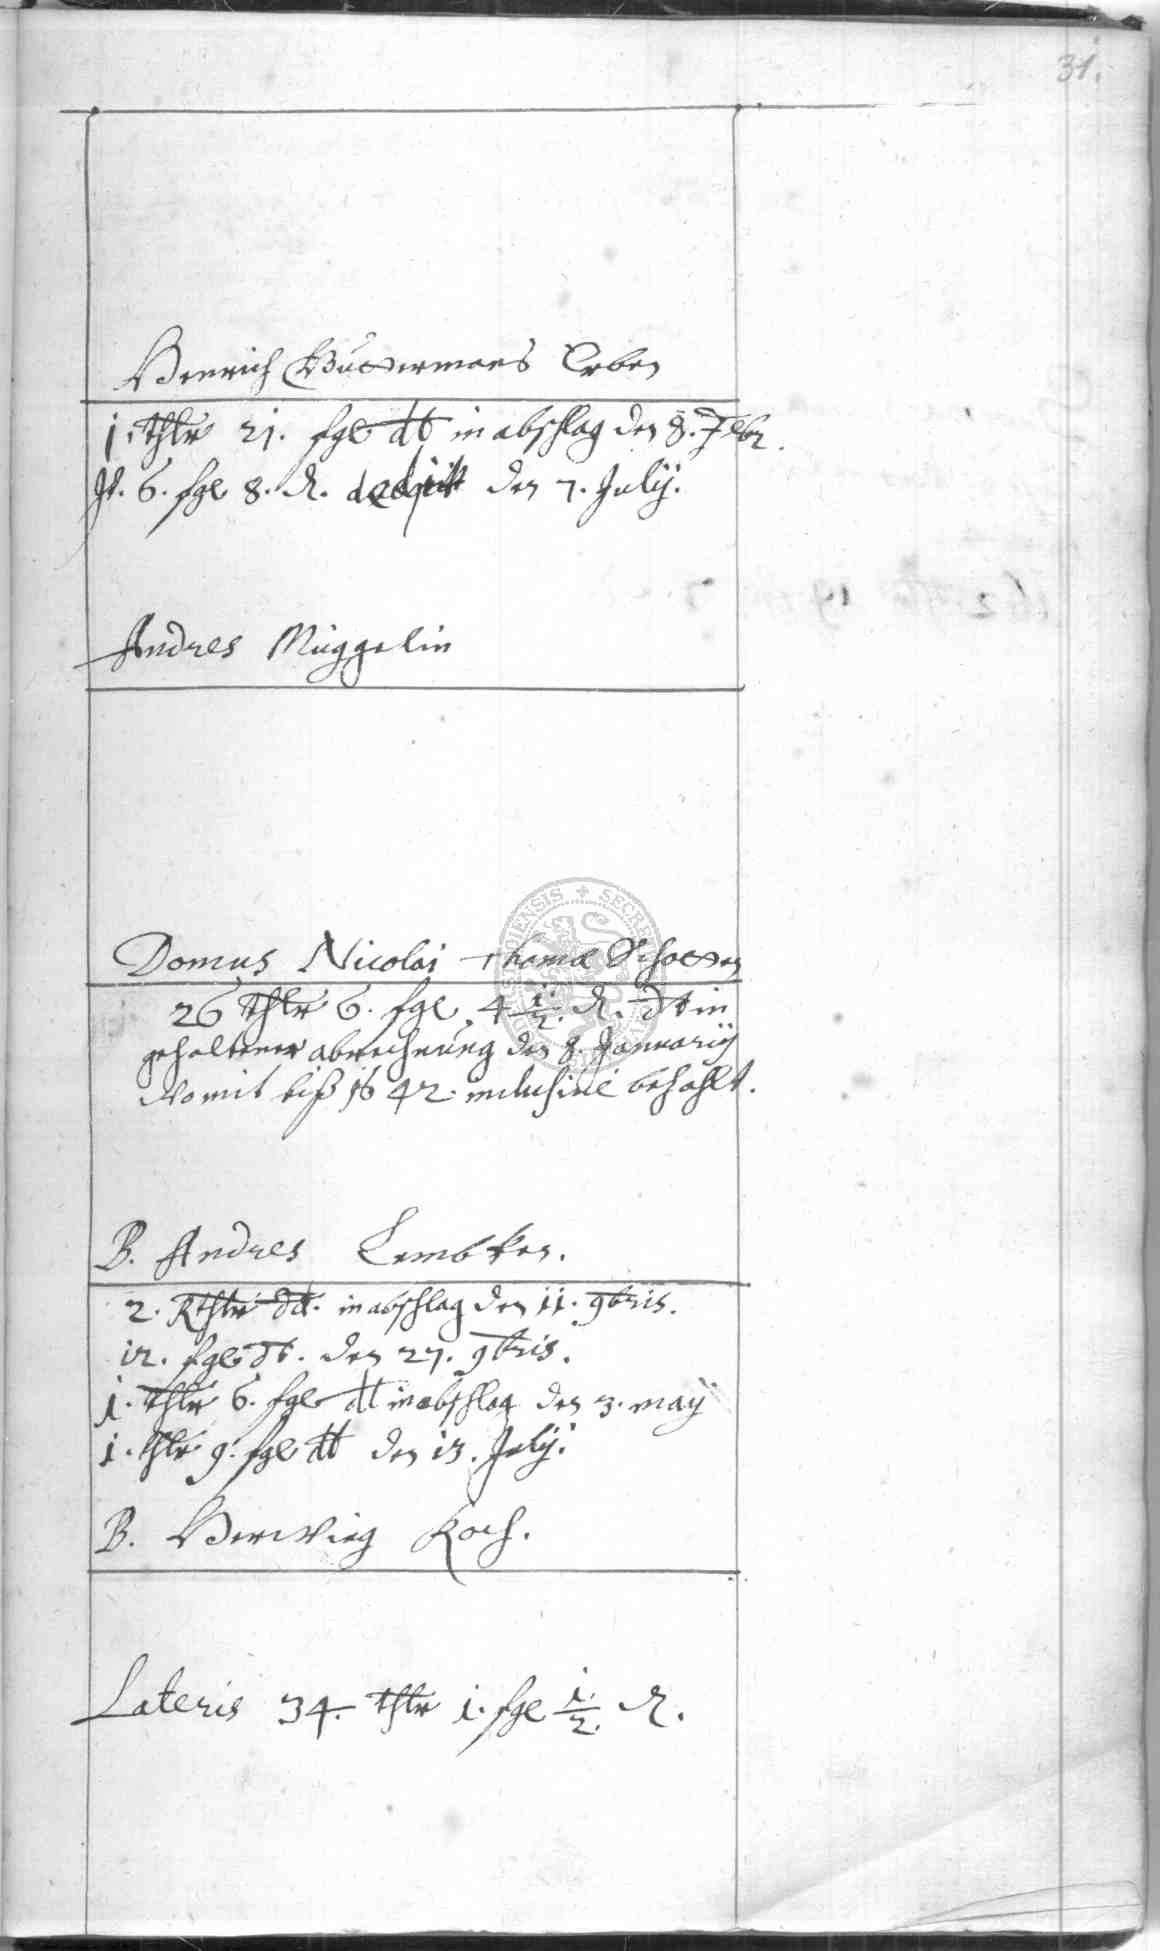 31.
Henrich Buttermans Erben
1. thlr 21. sgl dt in abschlag den 8. Febr.
It. 6. sgl 8. d. dedit den 7. July.
Andres Müggelin
Domus Nicolai Thomæ Schotten
26 thlr 6. sgl. 4 1/2. d. dt in
gehaltener abrechnung den 8. January
Womit biß 1642 inclusive bezahlt.
B. Andres Lembken.
2. Rthlr dt. in abschlag den 11. 9bris.
12. sgl dt. den 27. 9bris.
1. thlr 6. sgl dt in abschlag den 3. may
1. thlr 9. sgl dt den 13. July.
B. Herwieg Koch.
Lateris 34. thlr 1. sgl 1/2. d.